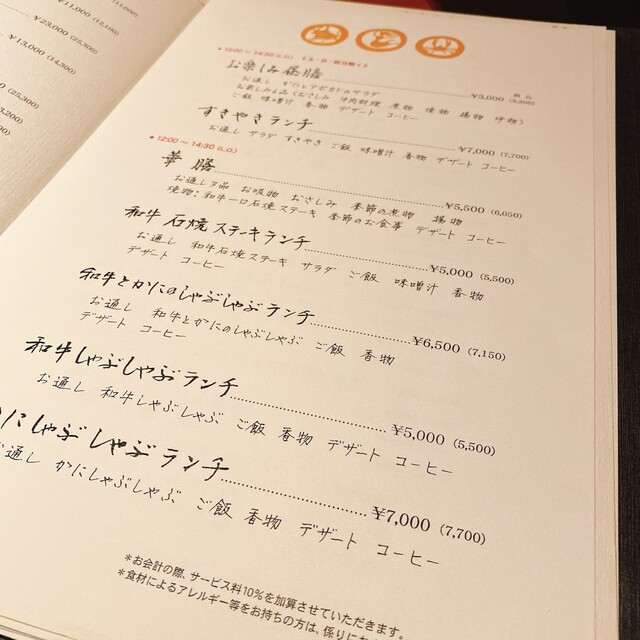 11,000)
¥23,000 (25,300)
¥13,000 (14,300)
12:00〜14:30 (L.O.)
税込
お楽しみ昼膳 ¥3,000 (3,300)
お通し かにとアボカドのサラダ
ご飯 味噌汁 香物 デザート コーヒー
すきやきランチ ¥7,000 (7,700)
お通し サラダ すきやき ご飯 味噌汁 香物 デザート コーヒー
12:00〜14:30 (L.O.)
華膳 ¥5,500 (6,050)
お通し3品 お吸物 おさしみ 季節の煮物 揚物
焼物:和牛一口石焼ステーキ 季節のお食事 デザート コーヒー
和牛石焼ステーキランチ ¥5,000 (5,500)
お通し 和牛石焼ステーキ サラダ ご飯 味噌汁 香物
デザート コーヒー
和牛とかにのしゃぶしゃぶランチ ¥6,500 (7,150)
お通し 和牛とかにのしゃぶしゃぶ ご飯 香物
デザート コーヒー
和牛しゃぶしゃぶランチ ¥5,000 (5,500)
お通し 和牛しゃぶしゃぶ ご飯 香物 デザート コーヒー
かにしゃぶしゃぶランチ ¥7,000 (7,700)
お通し かにしゃぶしゃぶ ご飯 香物 デザート コーヒー
*お会計の際、サービス料10%を加算させていただきます。
*食材によるアレルギー等をお持ちの方は、係りにお